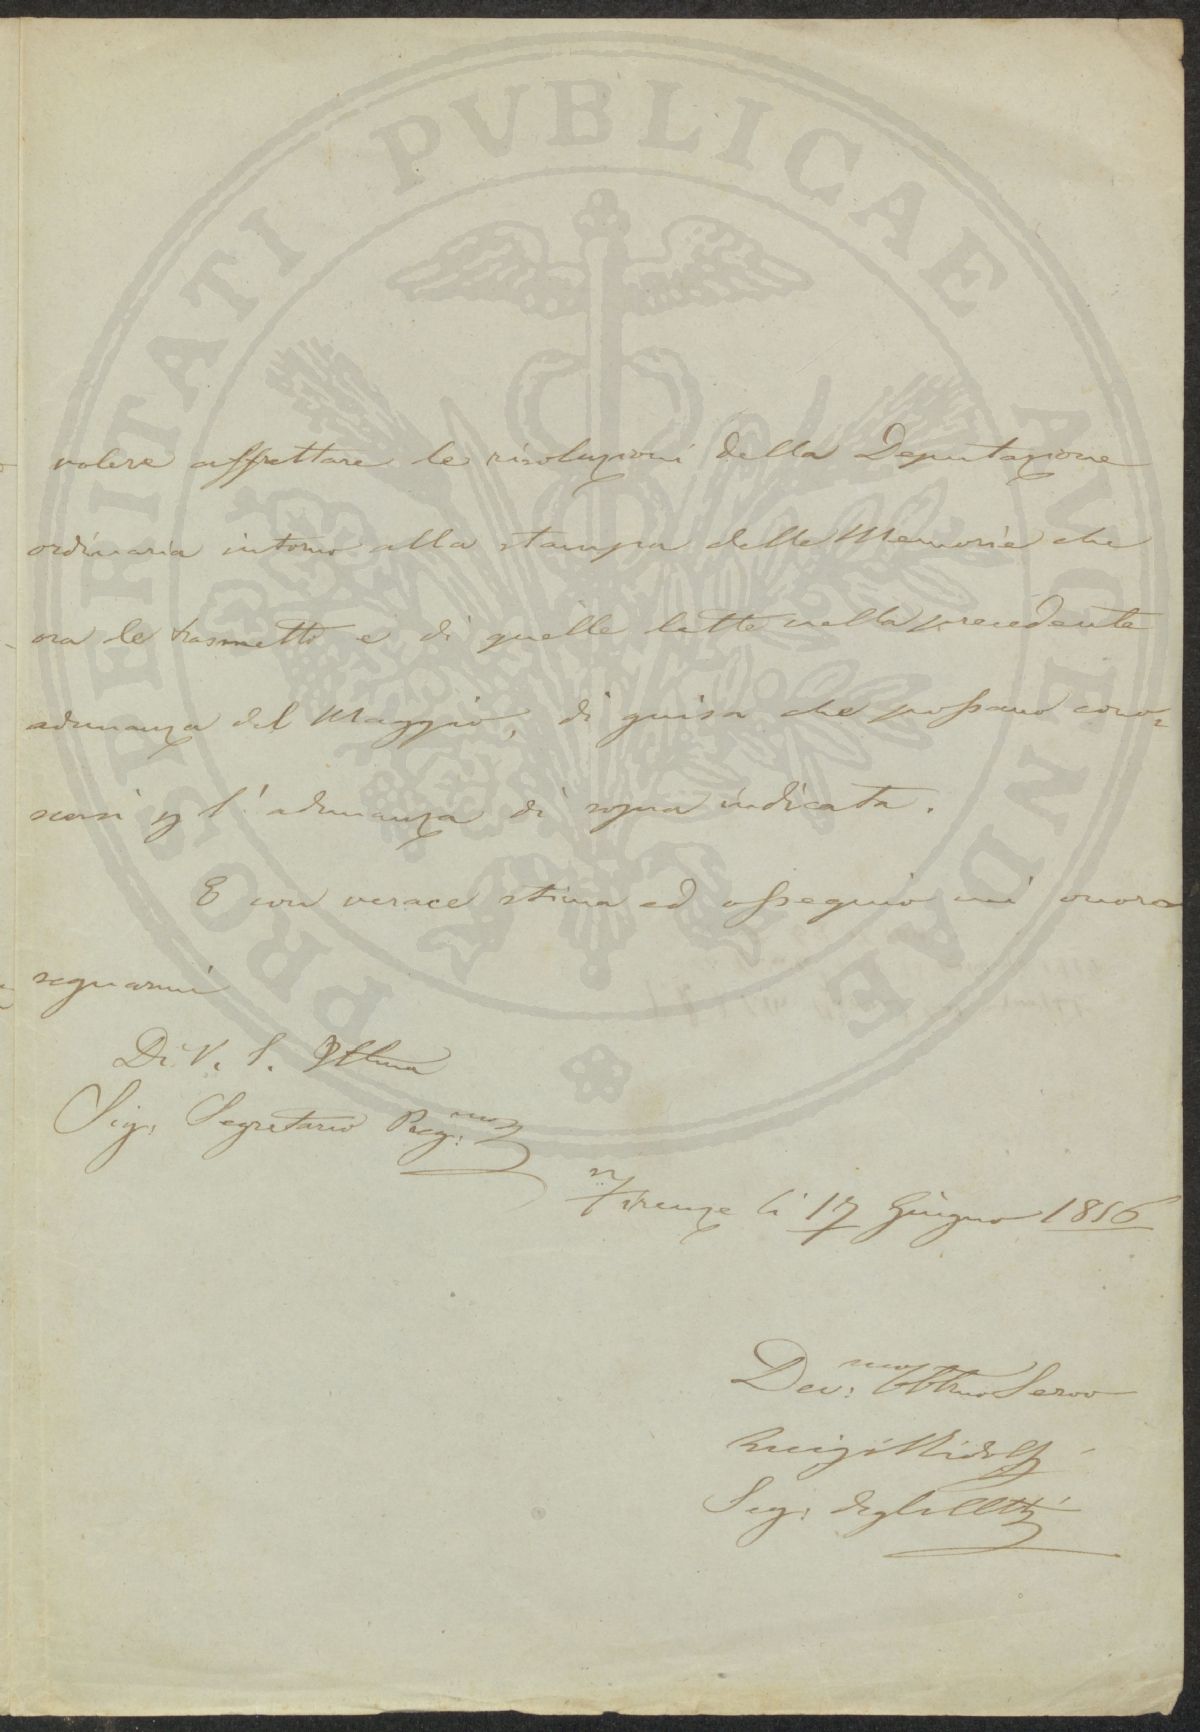 PROSPERITATI PVBLICAE AVGENDAE
volere affrettare le risoluzioni della Deputazione
ordinaria intorno alla stampa delle Memorie che
ora le trasmetto e di quelle lette nella precedente
adunanza del Maggio, di guisa che possano cono=
scersi p l'adunanza di sopra indicata.
E con verace stima ed ossequio mi onoro
segnarmi
Di V. S. Illma
Sig. Segretario
Firenze li 17 Giugno 1856
Dev:mo Obblmo Servo
Luigi Ridolfi
Seg: degli Atti